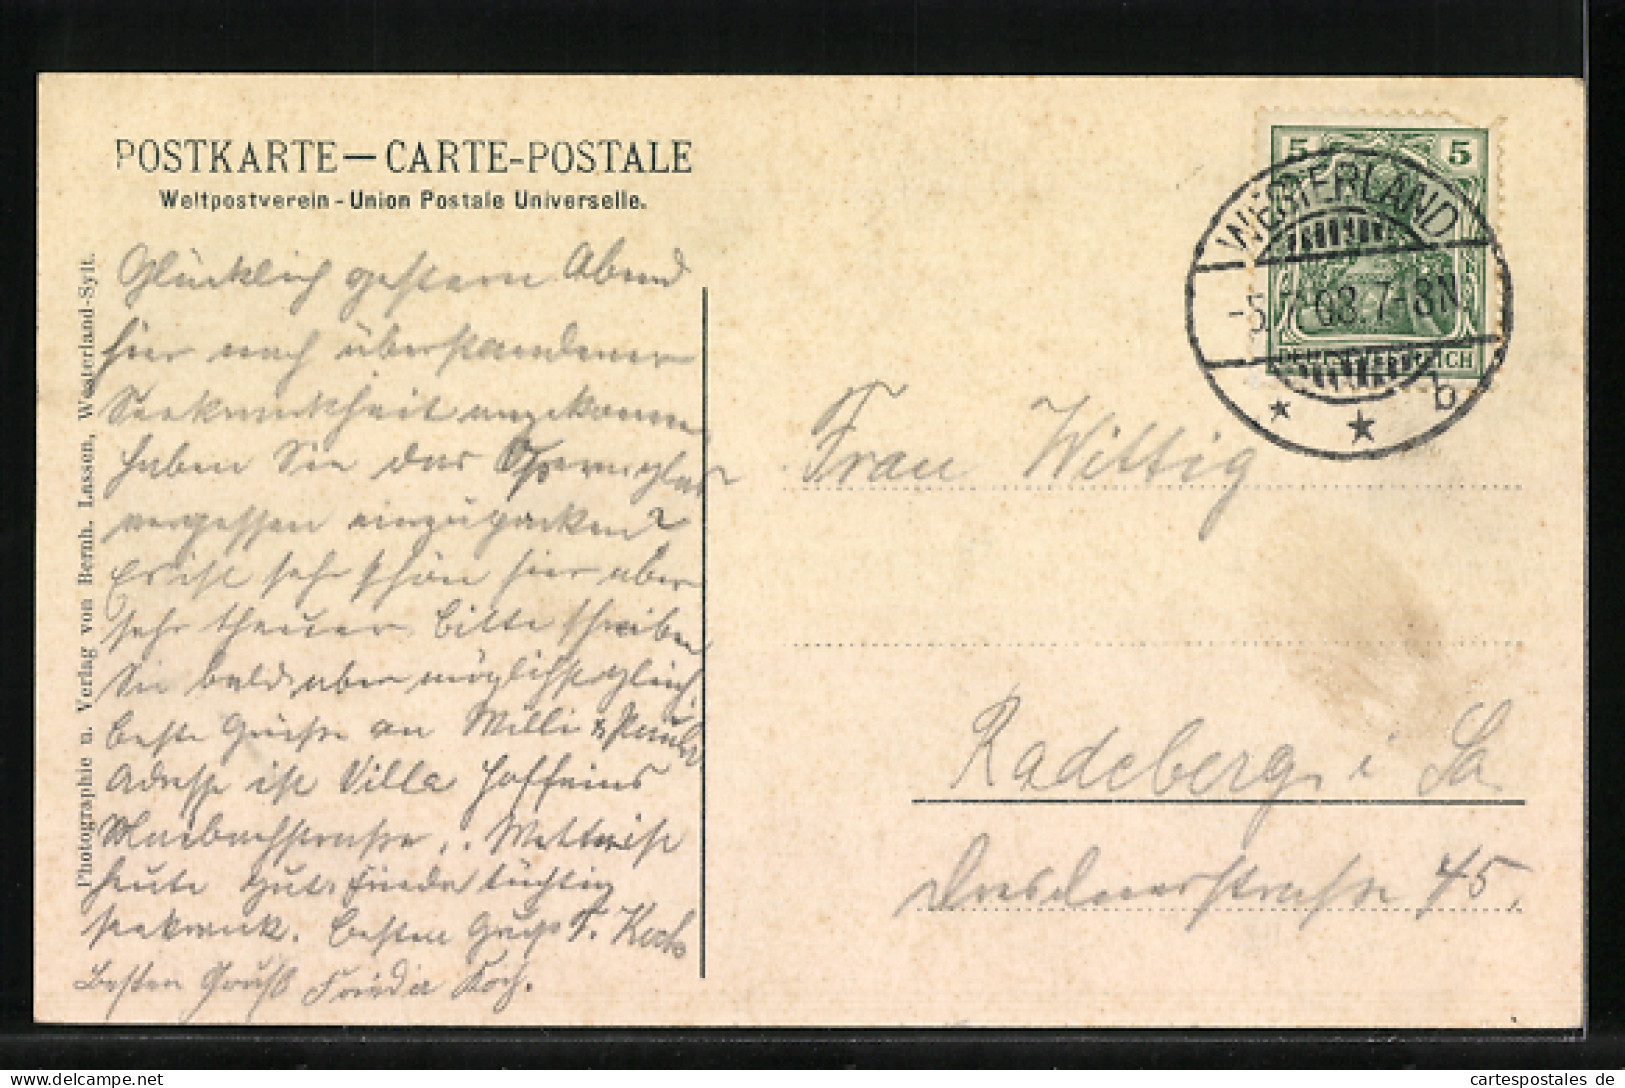 POSTKARTE — CARTE-POSTALE
Weltpostverein - Union Postale Universelle.
Photographie u. Verlag von Bernh. Lassen, Westerland-Sylt.
Glücklich gestern Abend
hier nach überstandener
Seekrankheit angekommen
haben Sie das Opernglas
vergessen einzupacken?
Es ist sehr schön hier aber
sehr theuer. Bitte schreiben
Sie bald aber möglichst gleich.
Beste Grüße an Willi &
Adresse ist Villa
Maibachstraße,
heute gut. Frieda tüchtig
seekrank. Besten Gruß F. Koch
Besten Gruß Frieda Koch.
5 5
DEUTSCHES REICH
WESTERLAND
-5.7.08.7-8N.
* * b
Frau Wittig
Radeberg i Sa
Dresdnerstraße 45.
cartespostales de